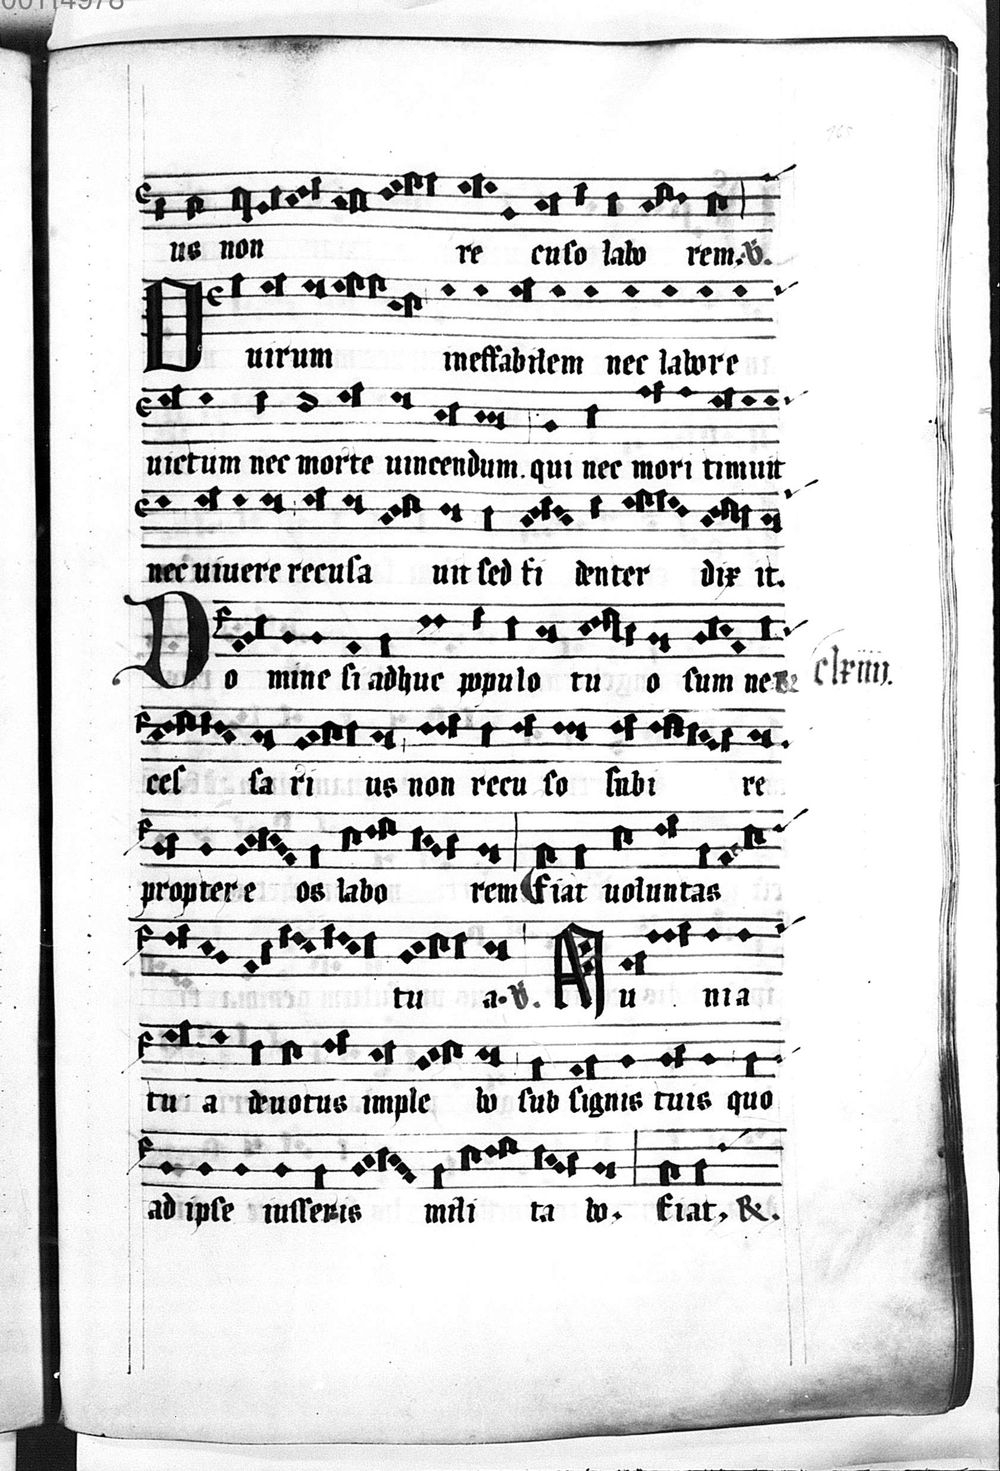 00114978
us non re cuso labo rem. V.
O uirum ineffabilem nec labore
uictum nec morte uincendum. qui nec mori timuit
nec uiuere recusa uit sed fi denter dix it.
Do mine si adhuc populo tu o sum ne
clxiiii.
ces sa ri us non recu so subi re
propter e os labo rem Fiat uoluntas
tu a. V. Au nia
tu a deuotus imple bo sub signis tuis quo
ad ipse iusseris mili ta bo. Fiat. &.